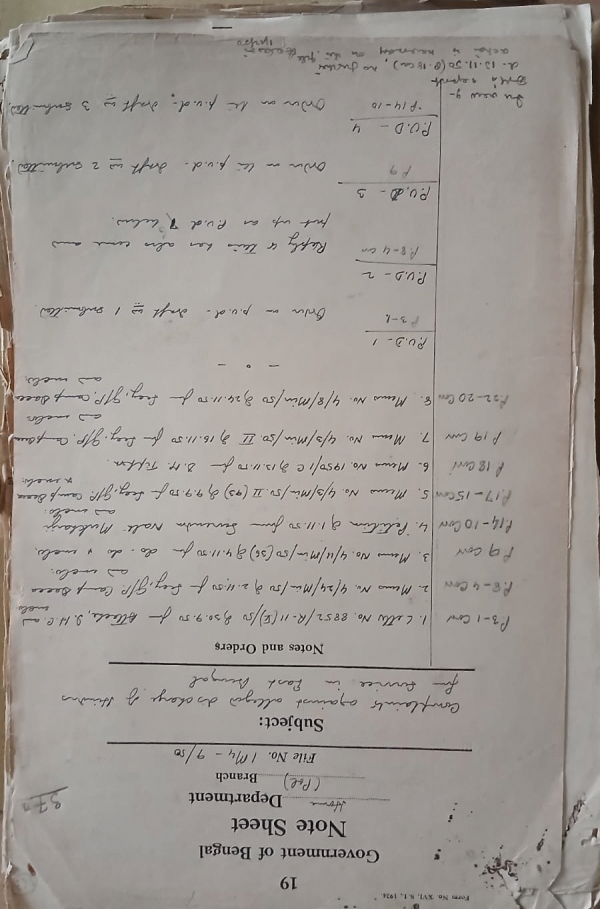 Form No. XVI, S. I., 1926
19
Government of Bengal
Note Sheet
Home Department
(Pol) Branch
File No. 1M4-9/50
Subject:
Complaints against alleged discharge of Hindus
for service in East Bengal
Notes and Orders
P.3-1 Corr 1. Letter No. 8852/R-11(E)/50 d/ 30.9.50 fr I.H.C. and
P.8-4 Corr 2. Memo No. 4/24/Min/50 d/ 2.11.50 fr Secy, G/P. Camp Dacca
and enclo:
P9 Corr 3. Memo No. 4/4/Min/50 d/ 4.11.50 fr do. do. & enclo.
P.14-10 Corr 4. Petition d/ 1.11.50 from Surendra Nath Mukherji
and enclo:
P.17-15 Corr 5. Memo No. 4/3/Min/50 II d/ 9.9.50 fr Secy, G/P. Camp Dacca
& enclo.
P 18 Corr 6. Memo No. 1950/C d/ 13.11.50 fr D.M. Tippera.
P 19 Corr 7. Memo No. 4/3/Min/50. II d/ 16.11.50 fr Secy, G/P. Camp Dacca
and enclo
P.22-20 Corr 8. Memo No. 4/8/Min/50 d/ 24.11.50 fr Secy, G/P. Camp Dacca
and enclo.
P.U.D - 1
P 3-1
Order on p.u.d - draft 1 submitted.
P.U.D - 2
P.8-4 Corr
Reply to this has also come and
put up as P.U.D 7 below.
P.U.D - 3
P 9
Order on the p.u.d - draft 2 submitted.
P.U.D - 4
P 14-10
Order on the p.u.d. draft 3 submitted.
In view of
D.M's report
d- 13.11.50 (P.18 Corr), no further
action is necessary on the